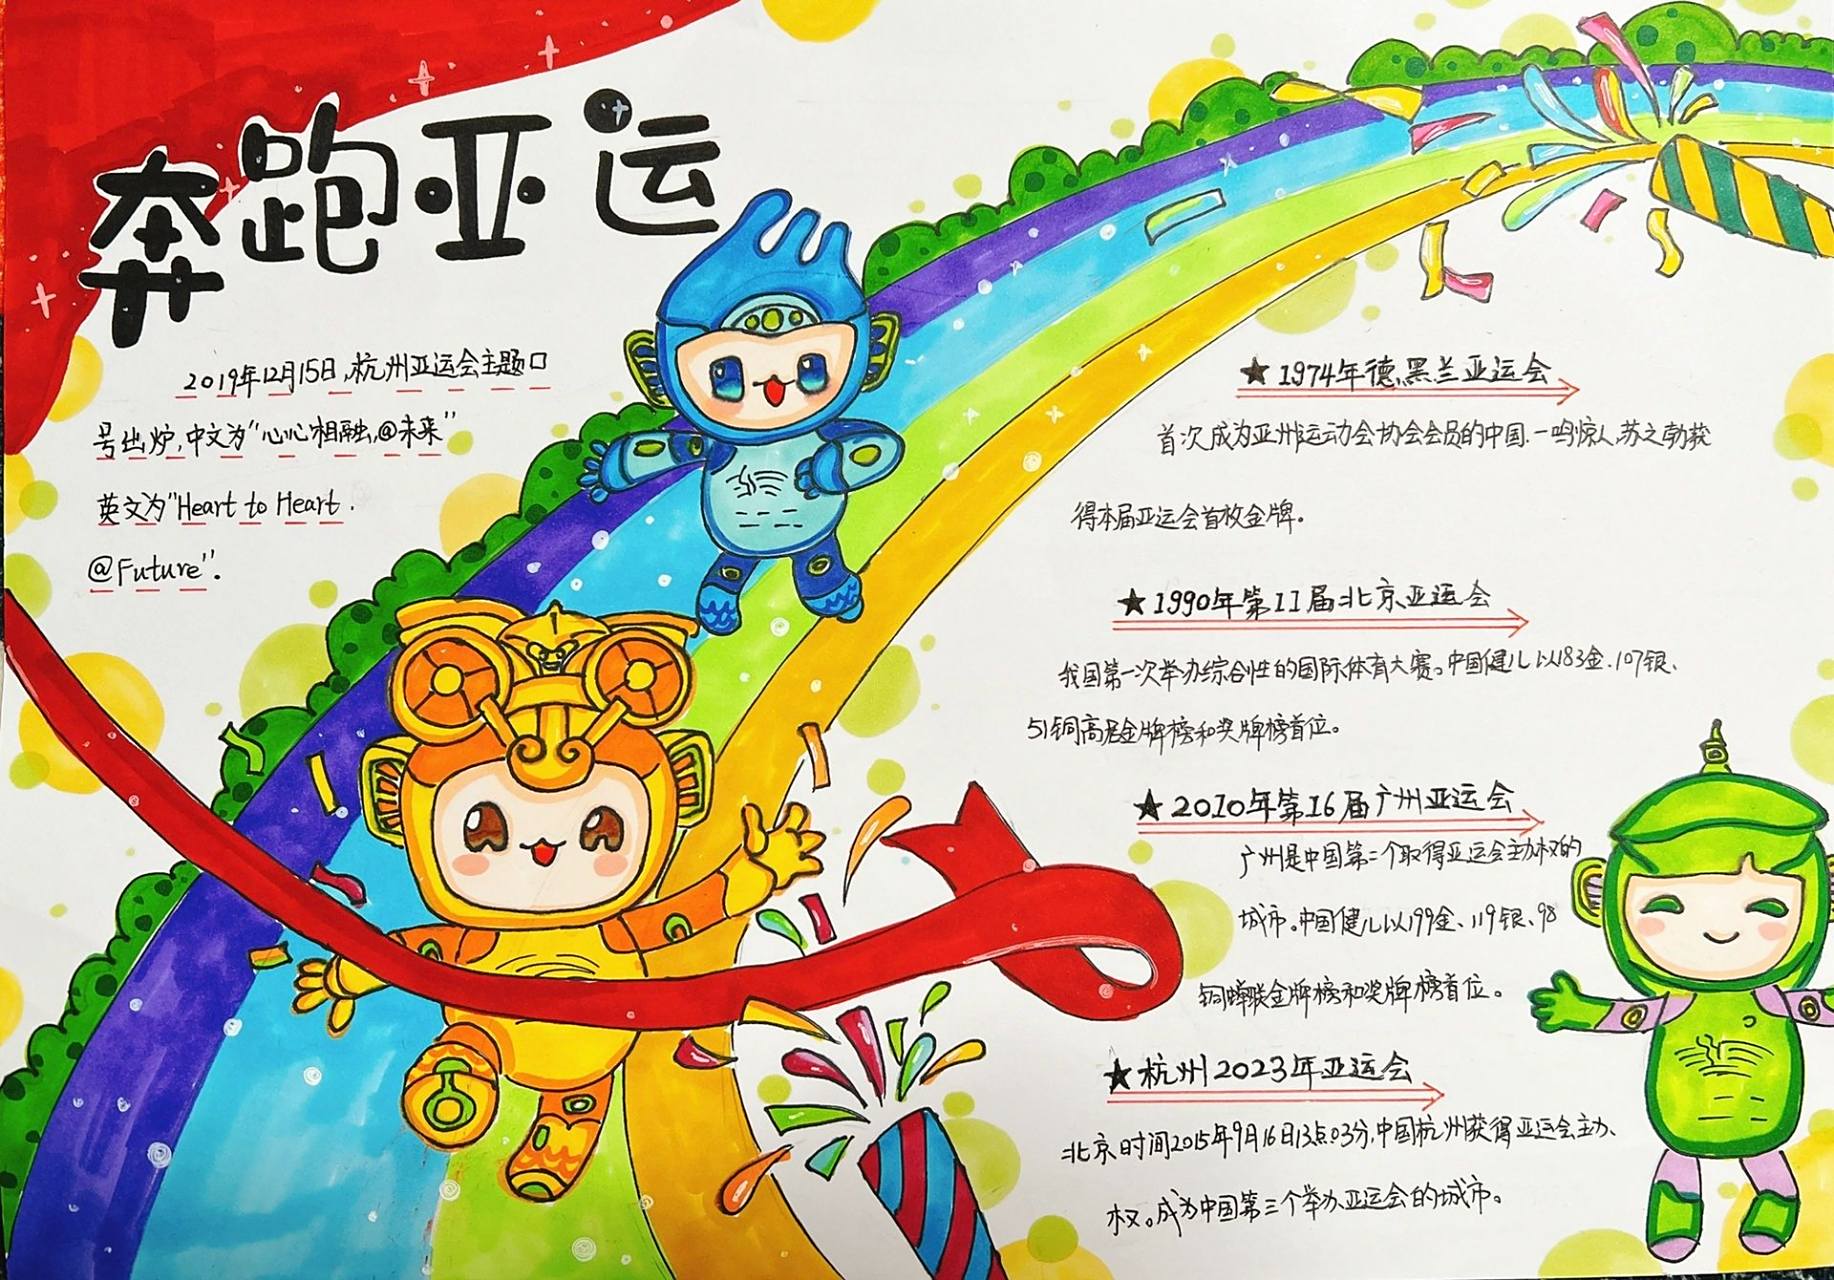 奔跑亚运
2019年12月15日,杭州亚运会主题口
号出炉,中文为"心心相融,@未来"
英文为"Heart to Heart.
@Future".
★1974年德黑兰亚运会
首次成为亚洲运动会协会会员的中国.一鸣惊人,苏之勃获
得本届亚运会首枚金牌。
★1990年第11届北京亚运会
我国第一次举办综合性的国际体育大赛。中国健儿以183金、107银、
51铜高居金牌榜和奖牌榜首位。
★2010年第16届广州亚运会
广州是中国第二个取得亚运会主办权的
城市。中国健儿以199金、119银、98
铜蝉联金牌榜和奖牌榜首位。
★杭州2023年亚运会
北京时间2015年9月16日13点03分,中国杭州获得亚运会主办
权。成为中国第三个举办亚运会的城市。